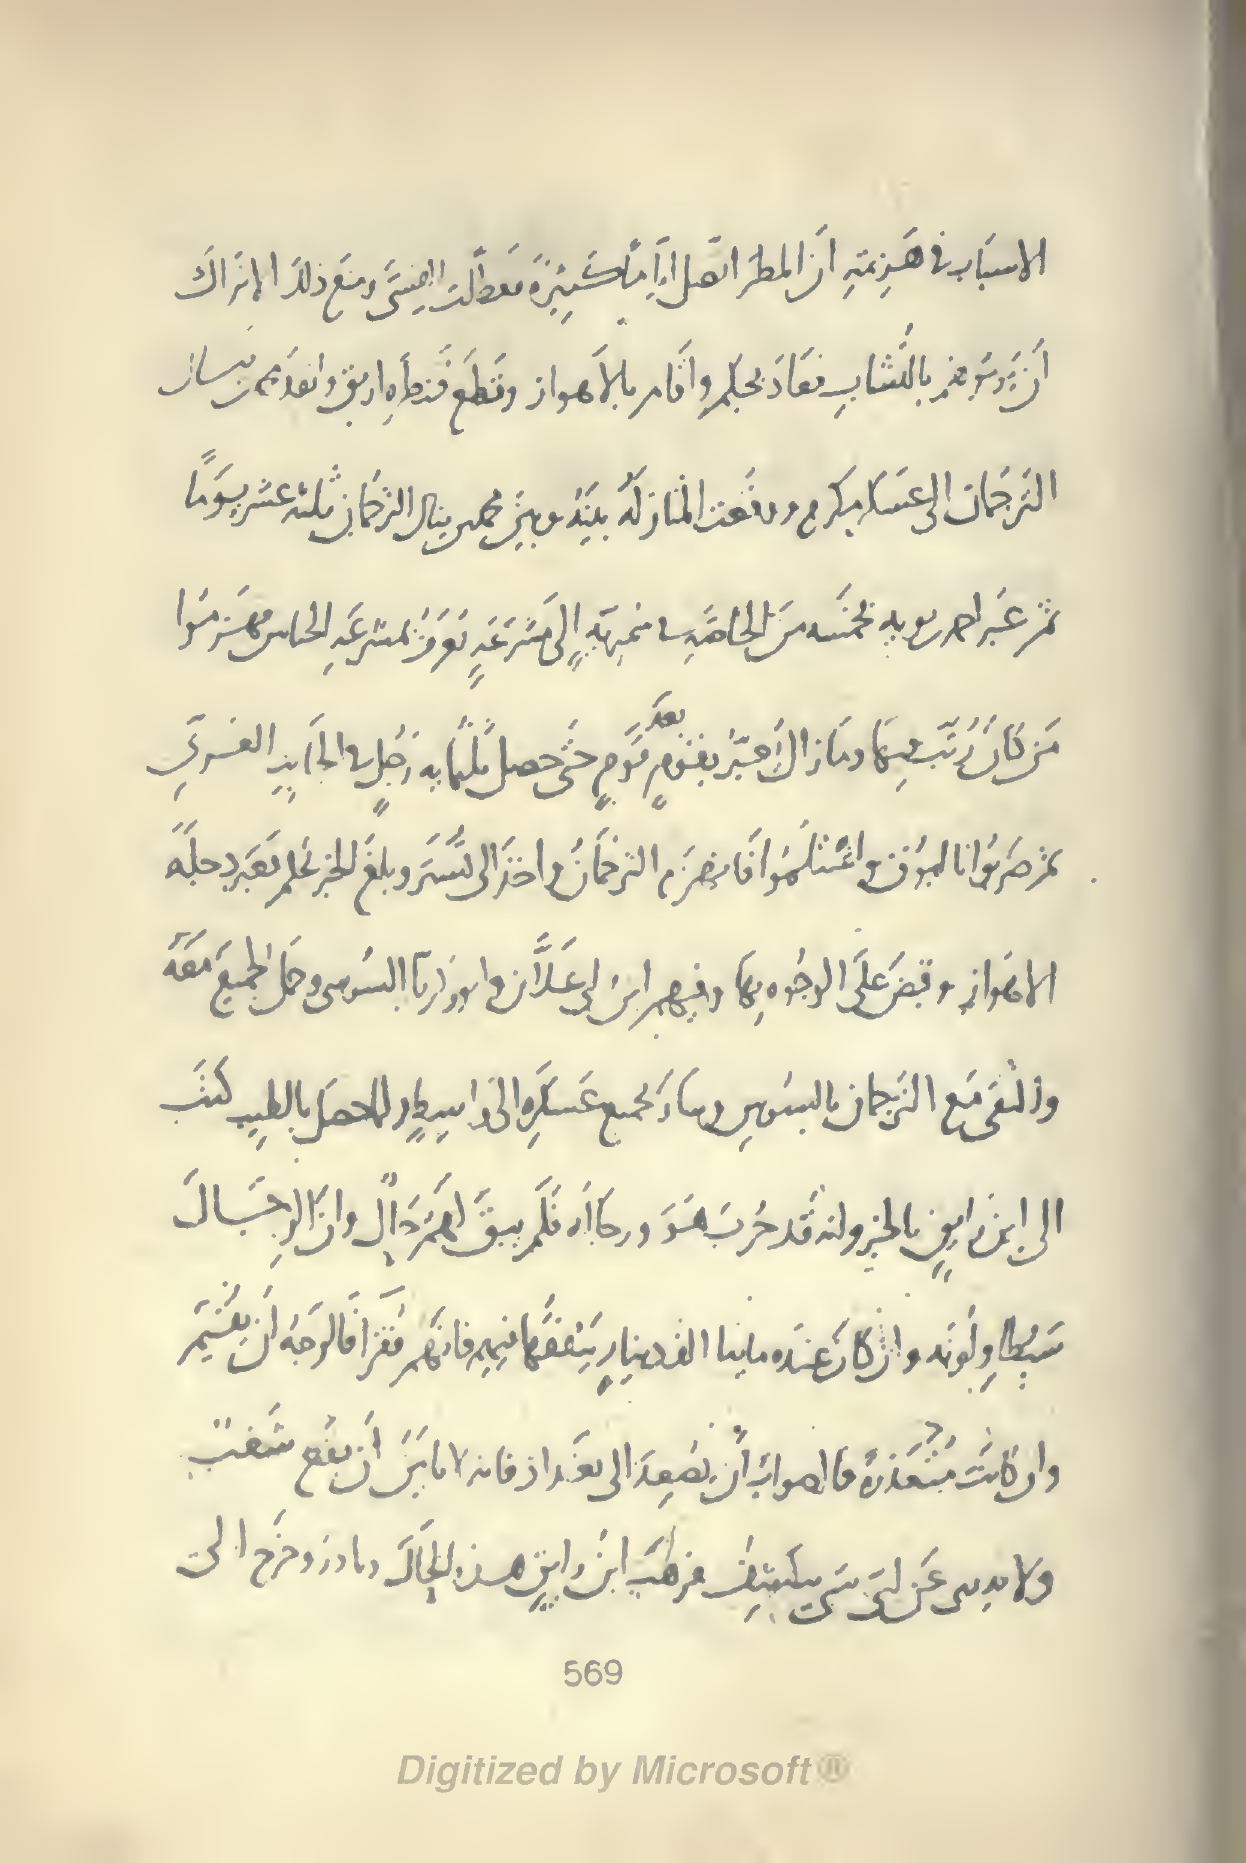 الاسباب في هزيمته ان المطر اتصل اياما كثيرة فعطلت القسى ومنع ذلك الاتراك
أن يرموهم بالنشاب فعاد بجكم واقام بالاهواز وقطع قنطرة اربق وانفذ محمد بن ينال
الترجمان الى عسكر مكرم ووقعت المنازلة بينه وبين محمد بن ينال الترجمان ثلثة عشر يوما
ثم عبر احمد بويه بخمسة من الخاصة في الى مشرعة تعرف بمشرعة فهزموا
من كان رتب فيها وما زال يعبر بقوم بعد قوم حتى حصل ثلثمايه رجل في الجانب الغربي
ثم ضربوا بالبوق واشتلموا فانهزم الترجمان واخذ الى تستر وبلغ الخبر بجكم فعبر دجلة
الاهواز وقبض على الوجوه بها وفيهم ابن ابي علان وابو زكريا السوسى وحمل الجميع معه
والتقى مع الترجمان بالسوس وسار بجميع عسكره الى واسط ولما حصل بالطيب كتب
الى ابن رايق بالخبر وانه قد حرب هو ورجاله فلم يبق لهم مال وان الرجال
وان كان عنده مايتا الف دينار ينفقها فيهم فانهم فقرا فالوجه أن يقيم
وان كانت متعذرة فالصواب أن يصعد الى بغداذ فانه لا يأمن أن يقع شغب
ولا يدرى عن اى شى ينكشف فرهب ابن رايق هذه الحال وبادر وخرج الى
569
Digitized by Microsoft ®